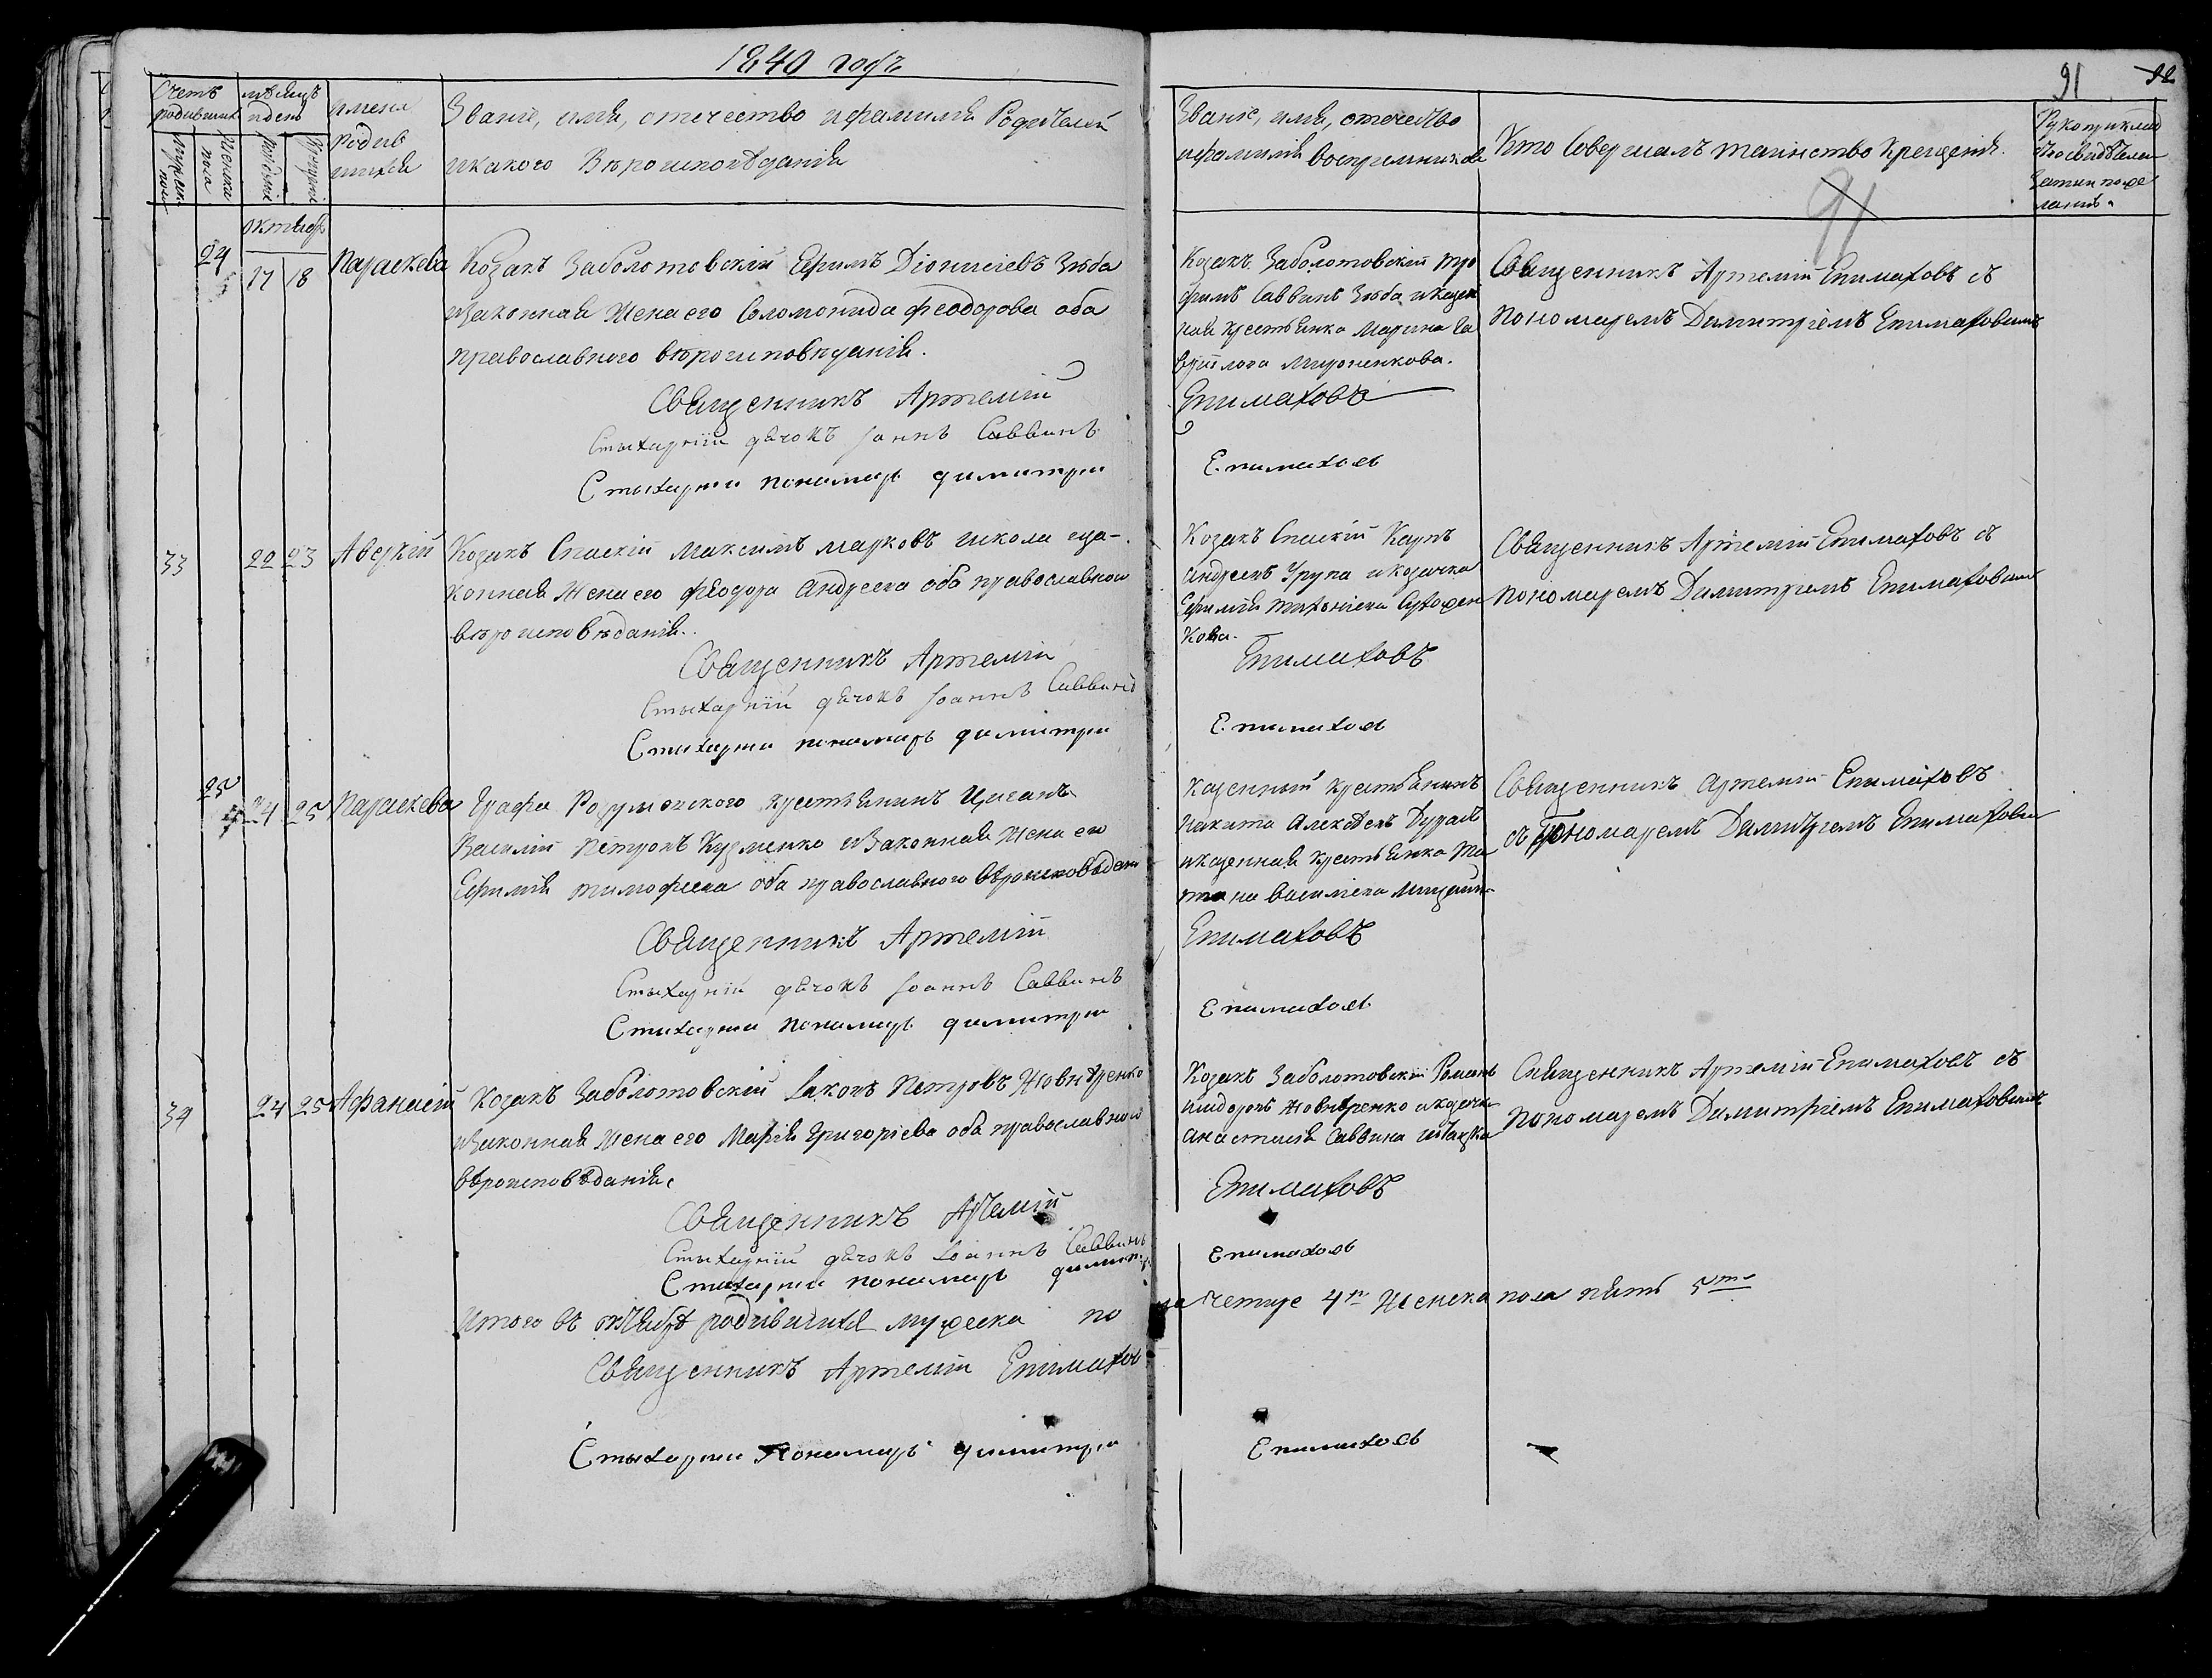 1840 годъ
91
Счетъ родившихся
Мужеска пола
Женска пола
мѣсяцъ и день
Рожденія
Крещенія
имена родившихся
Званіе, имя, отечество и фамилія Родителей
и какого Вѣроисповѣданія
Званіе, имя, отечество
и фамилія воспріемниковъ
Кто Совершалъ таинство Крещенія.
91
Октябрь
24
17 18 Параскева
Козакъ Заболотовскій Ефимъ Діонисіевъ Зюба
и Законная Жена его Соломонида Феодорова оба
православного вѣроисповѣданія.
Священникъ Артемій
Стыхарній дячокъ Іоаннъ Саввинъ
Стыхарни пономарь димитри
Козакъ Заболотовскій Тро
фимъ Саввинъ Зюба и Казен
ная крестьянка Марина Га
Мироненкова.
Епимаховъ
Епимаховъ
Священникъ Артемій Епимаховъ съ
пономаремъ Димитріемъ Епимаховымъ
33 22 23 Аверкій
Козакъ Спаскій Максимъ Марковъ Школа и за-
конная Жена его Феодора Андреева оба православного
вѣроисповѣданія.
Священникъ Артемій
Стыхарній дячокъ Іоаннъ Саввинъ
Стихарни пономарь димитри
Козакъ Спаскій Карпъ
Андреевъ и козачка
Ефимія
кова.
Епимаховъ
Епимаховъ
Священникъ Артемій Епимаховъ съ
пономаремъ Димитріемъ Епимаховымъ
25
24 25 Параскева
Графа Розумовского крестьянинъ Циганъ
Василій Петровъ Кузменко и Законная Жена его
Ефимія Тимофеева оба православного вѣроисповѣдани
Священникъ Артемій
Стыхарній дячокъ Іоаннъ Саввинъ
Стихарни пономарь димитри
Казенный крестьянинъ
Никита Алексѣевъ
и казенная крестьянка Та
тяна Василиева
Епимаховъ
Епимаховъ
Священникъ Артемій Епимаховъ
съ Пономаремъ Димитріемъ Епимаховим
34 24 25 Афанасій
Козакъ Заболотовскій Іаковъ Петровъ Жовнѣренко
и Законная жена его Марія Григоріева оба православного
вѣроисповѣданія.
Священникъ Артемій
Стыхарній дячокъ Іоаннъ Саввинъ
Стихарни пономарь димитри
Козакъ Заболотовскій Романъ
Исидоровъ Жовнѣренко и козачка
Анастасія Саввина
Епимаховъ
Епимаховъ
Священникъ Артемій Епимаховъ съ
пономаремъ Димитріемъ Епимаховимъ
Итого въ октябрѣ родившихся мужеска по ла четыре 4 Женска пола пять 5
Священникъ Артемій Епимахов
Стыхарни Пономарь димитри Епимаховъ